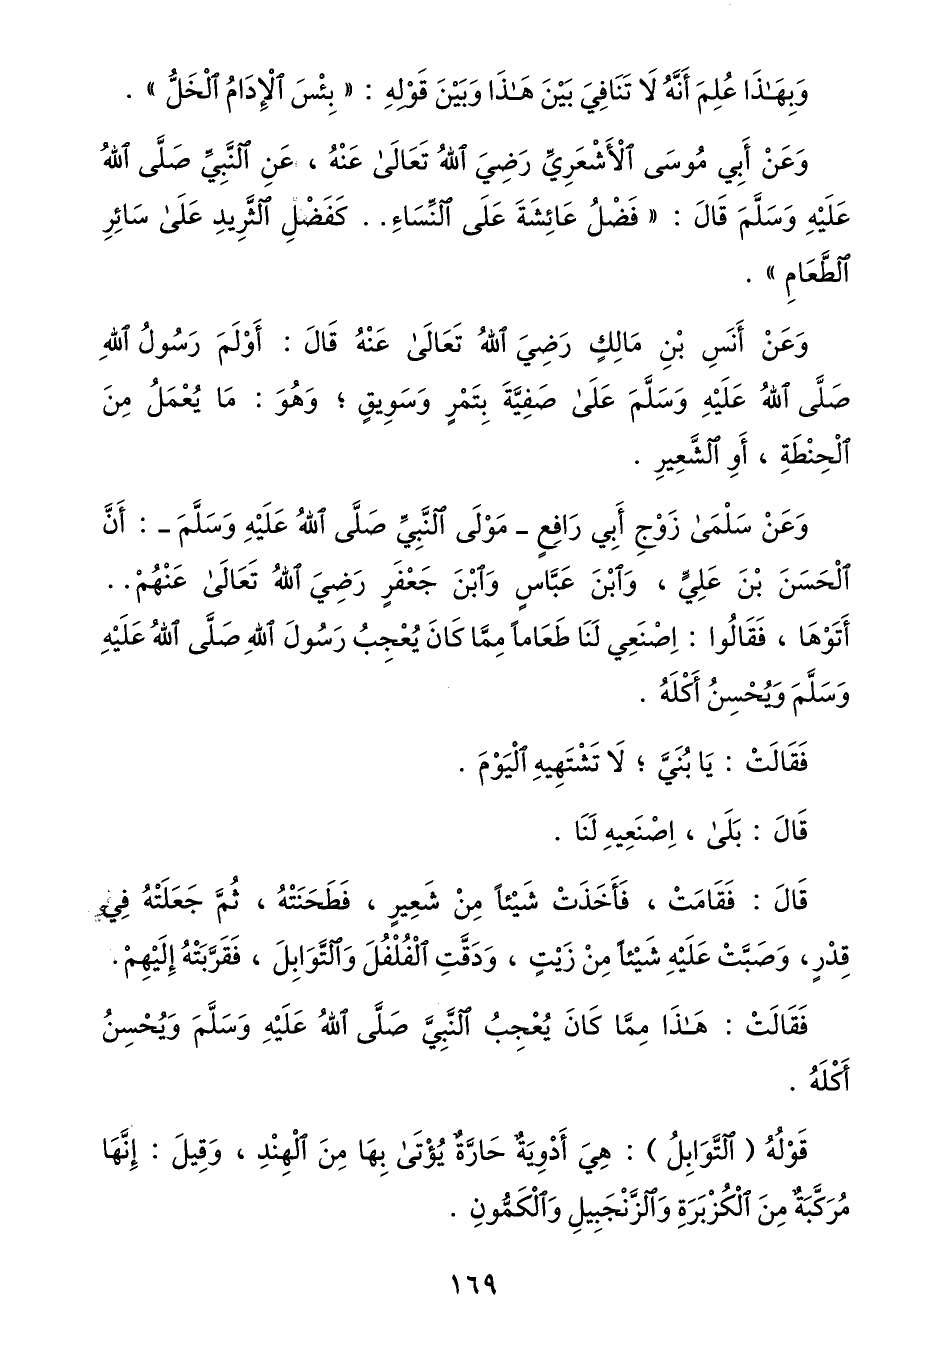 وَبِهَـٰذَا عُلِمَ أَنَّهُ لَا تَنَافِيَ بَيْنَ هَـٰذَا وَبَيْنَ قَوْلِهِ : « بِئْسَ ٱلْإِدَامُ ٱلْخَلُّ » .
وَعَنْ أَبِي مُوسَى ٱلْأَشْعَرِيِّ رَضِيَ ٱللهُ تَعَالَىٰ عَنْهُ ، عَنِ ٱلنَّبِيِّ صَلَّى ٱللهُ
عَلَيْهِ وَسَلَّمَ قَالَ : « فَضْلُ عَائِشَةَ عَلَى ٱلنِّسَاءِ . . كَفَضْلِ ٱلثَّرِيدِ عَلَىٰ سَائِرِ
ٱلطَّعَامِ » .
وَعَنْ أَنَسِ بْنِ مَالِكٍ رَضِيَ ٱللهُ تَعَالَىٰ عَنْهُ قَالَ : أَوْلَمَ رَسُولُ ٱللهِ
صَلَّى ٱللهُ عَلَيْهِ وَسَلَّمَ عَلَىٰ صَفِيَّةَ بِتَمْرٍ وَسَوِيقٍ ؛ وَهُوَ : مَا يُعْمَلُ مِنَ
ٱلْحِنْطَةِ ، أَوِ ٱلشَّعِيرِ .
وَعَنْ سَلْمَىٰ زَوْجِ أَبِي رَافِعٍ ـ مَوْلَى ٱلنَّبِيِّ صَلَّى ٱللهُ عَلَيْهِ وَسَلَّمَ ـ : أَنَّ
ٱلْحَسَنَ بْنَ عَلِيٍّ ، وَٱبْنَ عَبَّاسٍ وَٱبْنَ جَعْفَرٍ رَضِيَ ٱللهُ تَعَالَىٰ عَنْهُمْ . .
أَتَوْهَا ، فَقَالُوا : اِصْنَعِي لَنَا طَعَاماً مِمَّا كَانَ يُعْجِبُ رَسُولَ ٱللهِ صَلَّى ٱللهُ عَلَيْهِ
وَسَلَّمَ وَيُحْسِنُ أَكْلَهُ .
فَقَالَتْ : يَا بُنَيَّ ؛ لَا تَشْتَهِيهِ ٱلْيَوْمَ .
قَالَ : بَلَىٰ ، اِصْنَعِيهِ لَنَا .
قَالَ : فَقَامَتْ ، فَأَخَذَتْ شَيْئاً مِنْ شَعِيرٍ ، فَطَحَنَتْهُ ، ثُمَّ جَعَلَتْهُ فِي
قِدْرٍ ، وَصَبَّتْ عَلَيْهِ شَيْئاً مِنْ زَيْتٍ ، وَدَقَّتِ ٱلْفُلْفُلَ وَٱلتَّوَابِلَ ، فَقَرَّبَتْهُ إِلَيْهِمْ .
فَقَالَتْ : هَـٰذَا مِمَّا كَانَ يُعْجِبُ ٱلنَّبِيَّ صَلَّى ٱللهُ عَلَيْهِ وَسَلَّمَ وَيُحْسِنُ
أَكْلَهُ .
قَوْلُهُ ( ٱلتَّوَابِلُ ) : هِيَ أَدْوِيَةٌ حَارَّةٌ يُؤْتَىٰ بِهَا مِنَ ٱلْهِنْدِ ، وَقِيلَ : إِنَّهَا
مُرَكَّبَةٌ مِنَ ٱلْكُزْبَرَةِ وَٱلزَّنْجَبِيلِ وَٱلْكَمُّونِ .
١٦٩